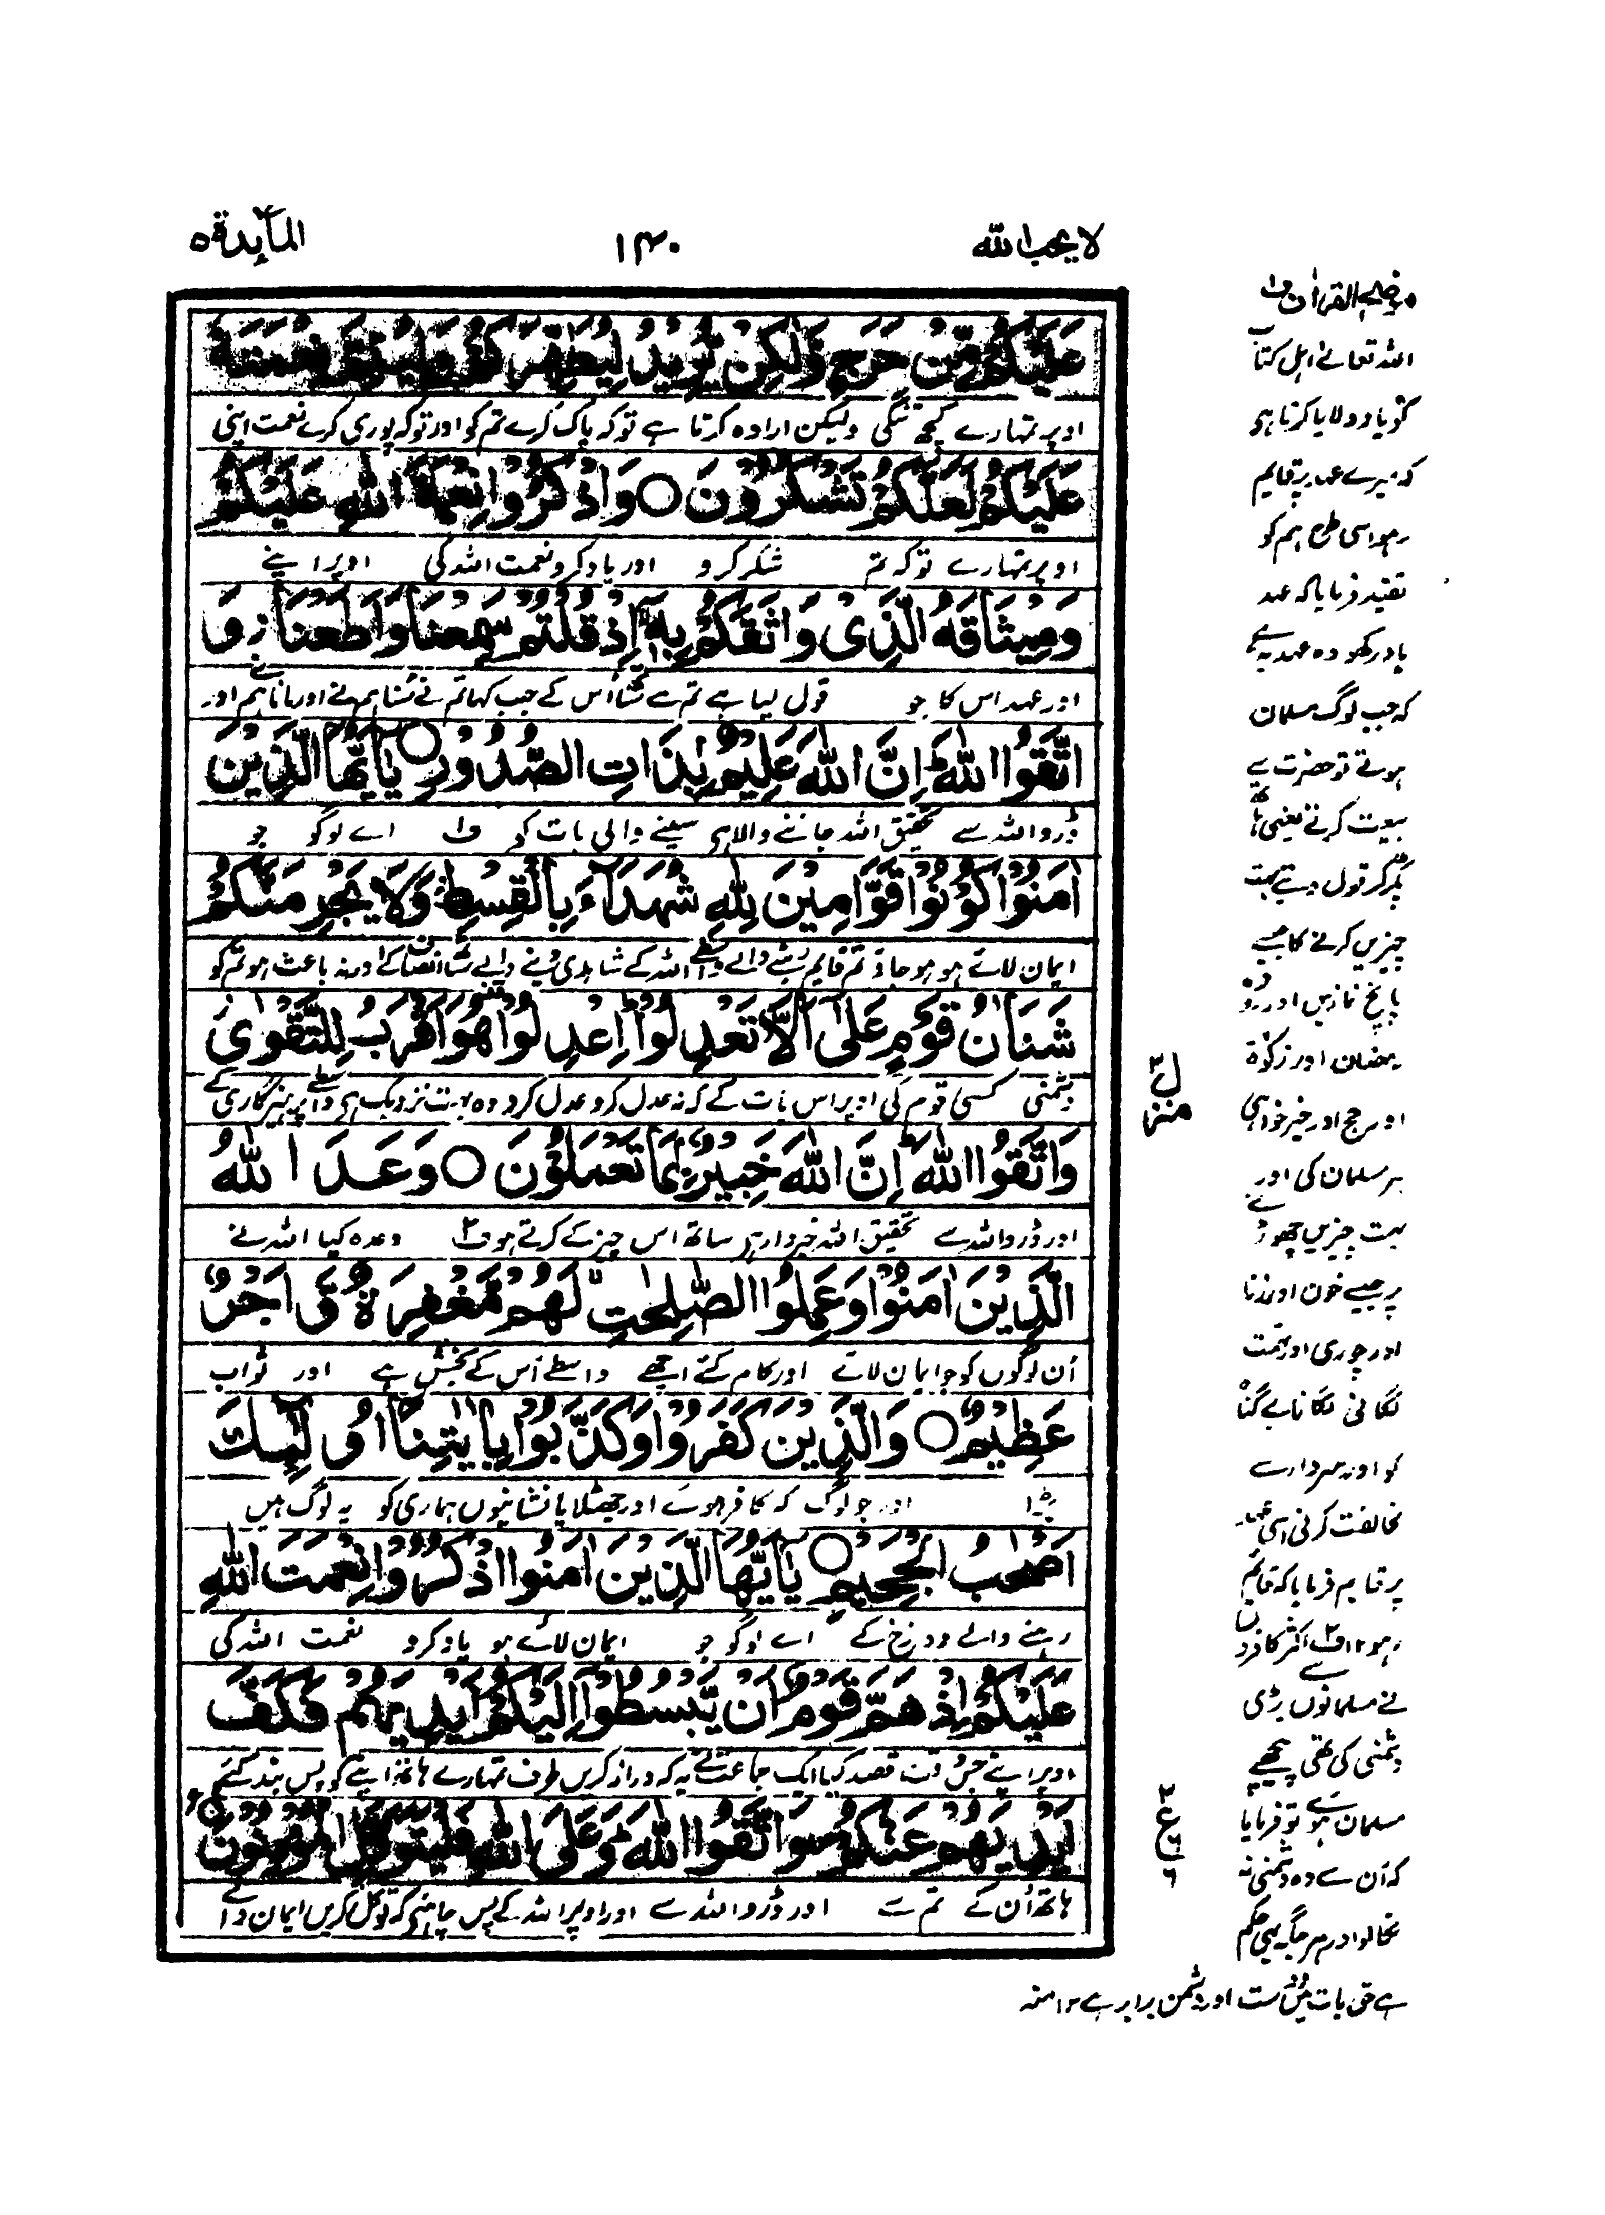 لا يحب الله
١٤٠
المآئدة ٥
عَلَيْكُمْ مِّنْ حَرَجٍ وَّلٰكِنْ يُّرِيْدُ لِيُطَهِّرَكُمْ وَلِيُتِمَّ نِعْمَتَهٗ
اوپر تمہارے کچھ تنگی ولیکن ارادہ کرتا ہے توکہ پاک کرے تم کو اور توکہ پوری کرے نعمت اپنی
عَلَيْكُمْ لَعَلَّكُمْ تَشْكُرُوْنَ ○ وَاذْكُرُوْا نِعْمَةَ اللّٰهِ عَلَيْكُمْ
اوپر تمہارے توکہ تم شکر کرو اور یاد کرو نعمت اللہ کی اوپر اپنے
وَمِيْثَاقَهُ الَّذِىْ وَاثَقَكُمْ بِهٖٓ اِذْ قُلْتُمْ سَمِعْنَا وَاَطَعْنَا ز وَ
اور عہد اس کا جو قول لیا ہے تم سے ساتھ اس کے جب کہا تم نے سنا ہم نے اور مانا ہم نے اور
اتَّقُوا اللّٰهَ ط اِنَّ اللّٰهَ عَلِيْمٌۢ بِذَاتِ الصُّدُوْرِ ○ يٰٓاَيُّهَا الَّذِيْنَ
ڈرو اللہ سے تحقیق اللہ جاننے والا ہے سینے والی بات کو ف١ اے لوگو جو
اٰمَنُوْا كُوْنُوْا قَوّٰمِيْنَ لِلّٰهِ شُهَدَآءَ بِالْقِسْطِ ز وَلَا يَجْرِمَنَّكُمْ
ایمان لائے ہو ہو جاؤ تم قایم رہنے والے واسطے اللہ کے شاہدی دینے والے ساتھ انصاف کے اور نہ باعث ہو تم کو
شَنَاٰنُ قَوْمٍ عَلٰٓى اَلَّا تَعْدِلُوْا ط اِعْدِلُوْا هُوَ اَقْرَبُ لِلتَّقْوٰى ز
دشمنی کسی قوم کی اوپر اس بات کے کہ نہ عدل کرو عدل کرو وہ بہت نزدیک ہے واسطے پرہیزگاری کے
وَاتَّقُوا اللّٰهَ ط اِنَّ اللّٰهَ خَبِيْرٌۢ بِمَا تَعْمَلُوْنَ ○ وَعَدَ اللّٰهُ
اور ڈرو اللہ سے تحقیق اللہ خبردار ہے ساتھ اس چیز کے کرتے ہو ف٢ وعدہ کیا اللہ نے
الَّذِيْنَ اٰمَنُوْا وَعَمِلُوا الصّٰلِحٰتِ لَهُمْ مَّغْفِرَةٌ وَّاَجْرٌ
ان لوگوں کو جو ایمان لائے اور کام کئے اچھے واسطے اُن کے بخشش ہے اور ثواب
عَظِيْمٌ ○ وَالَّذِيْنَ كَفَرُوْا وَكَذَّبُوْا بِاٰيٰتِنَآ اُولٰٓئِكَ
بڑا اور جو لوگ کہ کافر ہوئے اور جھٹلایا نشانیوں ہماری کو یہ لوگ ہیں
اَصْحٰبُ الْجَحِيْمِ ○ يٰٓاَيُّهَا الَّذِيْنَ اٰمَنُوا اذْكُرُوْا نِعْمَتَ اللّٰهِ
رہنے والے دوزخ کے اے لوگو جو ایمان لائے ہو یاد کرو نعمت اللہ کی
عَلَيْكُمْ اِذْ هَمَّ قَوْمٌ اَنْ يَّبْسُطُوْٓا اِلَيْكُمْ اَيْدِيَهُمْ فَكَفَّ
اوپر اپنے جس وقت قصد کیا ایک جماعت نے یہ کہ دراز کریں طرف تمہارے ہاتھ اپنے کو پس بند کئے
اَيْدِيَهُمْ عَنْكُمْ ج وَاتَّقُوا اللّٰهَ ط وَعَلَى اللّٰهِ فَلْيَتَوَكَّلِ الْمُؤْمِنُوْنَ ○
ہاتھ اُن کے تم سے اور ڈرو اللہ سے اور اوپر اللہ کے پس چاہئے کہ توکل کریں ایمان والے
موضح القرآن ف١
اللہ تعالےٰ اہل کتاب
کو یاد دلایا کرتا ہے
کہ میرے عہد پر قایم
رہو اسی طرح ہم کو
تقید فرمایا کہ عہد
یاد رکھو وہ عہد یہ ہے
کہ جب لوگ مسلمان
ہوتے تو حضرت سے
بیعت کرتے یعنی ہاتھ
پکڑ کر قول دیتے بہت
چیزیں کرنے کا جیسے
پانچ نمازیں اور روزہ
رمضان اور زکوٰۃ
اور حج اور خیر خواہی
ہر مسلمان کی اور
بہت چیزیں چھوڑنے
پر جیسے خون اور زنا
اور چوری اور تہمت
لگانی لگانا بے گناہ
کو اور سردار سے
مخالفت کرنی اسی عہد
پر قایم فرمایا کہ قائم
رہو ١٢ ف٢ اکثر کافروں
نے مسلمانوں سے بڑی
دشمنی کی تھی پیچھے
مسلمان ہوئے تو فرمایا
کہ اُن سے وہ دشمنی نہ
نکالو اور ہر جگہ یہی حکم
ہے حق بات میں دوست اور دشمن برابر ہے ١٢ منہ
منزل ٢
٢
ع
٦
٦